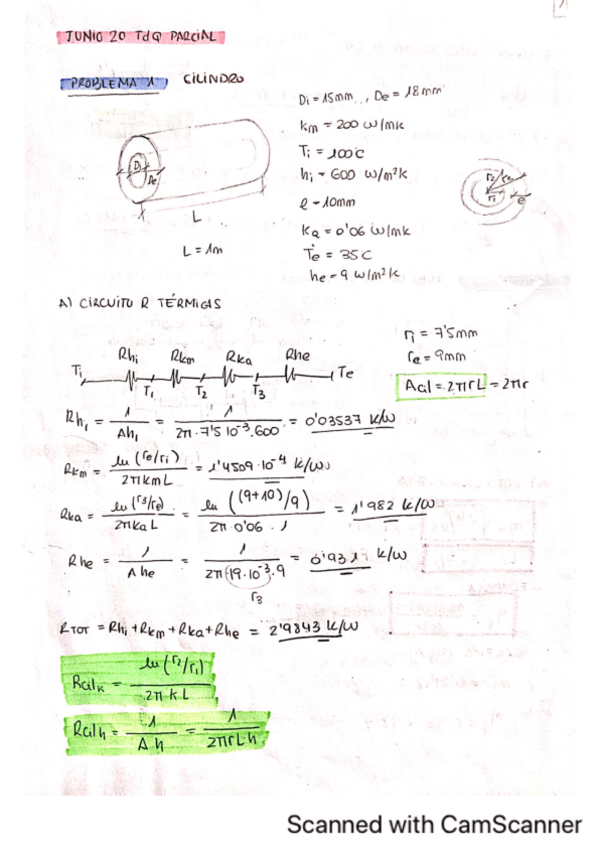 JUNIO 20 TdQ PARCIAL
PROBLEMA 1 CILINDRO
Di = 15mm , De = 18mm
km = 200 W/mk
Ti = 100°C
hi = 600 W/m²k
e = 10mm
ka = 0'06 W/mk
Te = 35C
he = 9 W/m²k
Di
De
L
L = 1m
r2/re
r1
e
A) CIRCUITO R TÉRMICAS
ri = 7'5mm
re = 9mm
Rhi Rkm Rka Rhe
Ti T1 T2 T3 Te
Acil = 2πrL = 2πr
Rhi = 1 / Ahi = 1 / 2π·7'5·10⁻³·600 = 0'03537 k/W
Rkm = ln(re/ri) / 2πkmL = 1'4509·10⁻⁴ k/W
Rka = ln(r3/re) / 2πkaL = ln((9+10)/9) / 2π·0'06·1 = 1'982 k/W
Rhe = 1 / Ahe = 1 / 2π(19·10⁻³·9 = 0'931 k/W
r3
RTOT = Rhi + Rkm + Rka + Rhe = 2'9843 k/W
Rcilk = ln(r2/r1) / 2πkL
Rcilh = 1 / Ah = 1 / 2πrL·h
Scanned with CamScanner